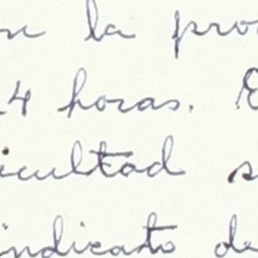 en la pro
24 horas. E
icultad s
indicato de